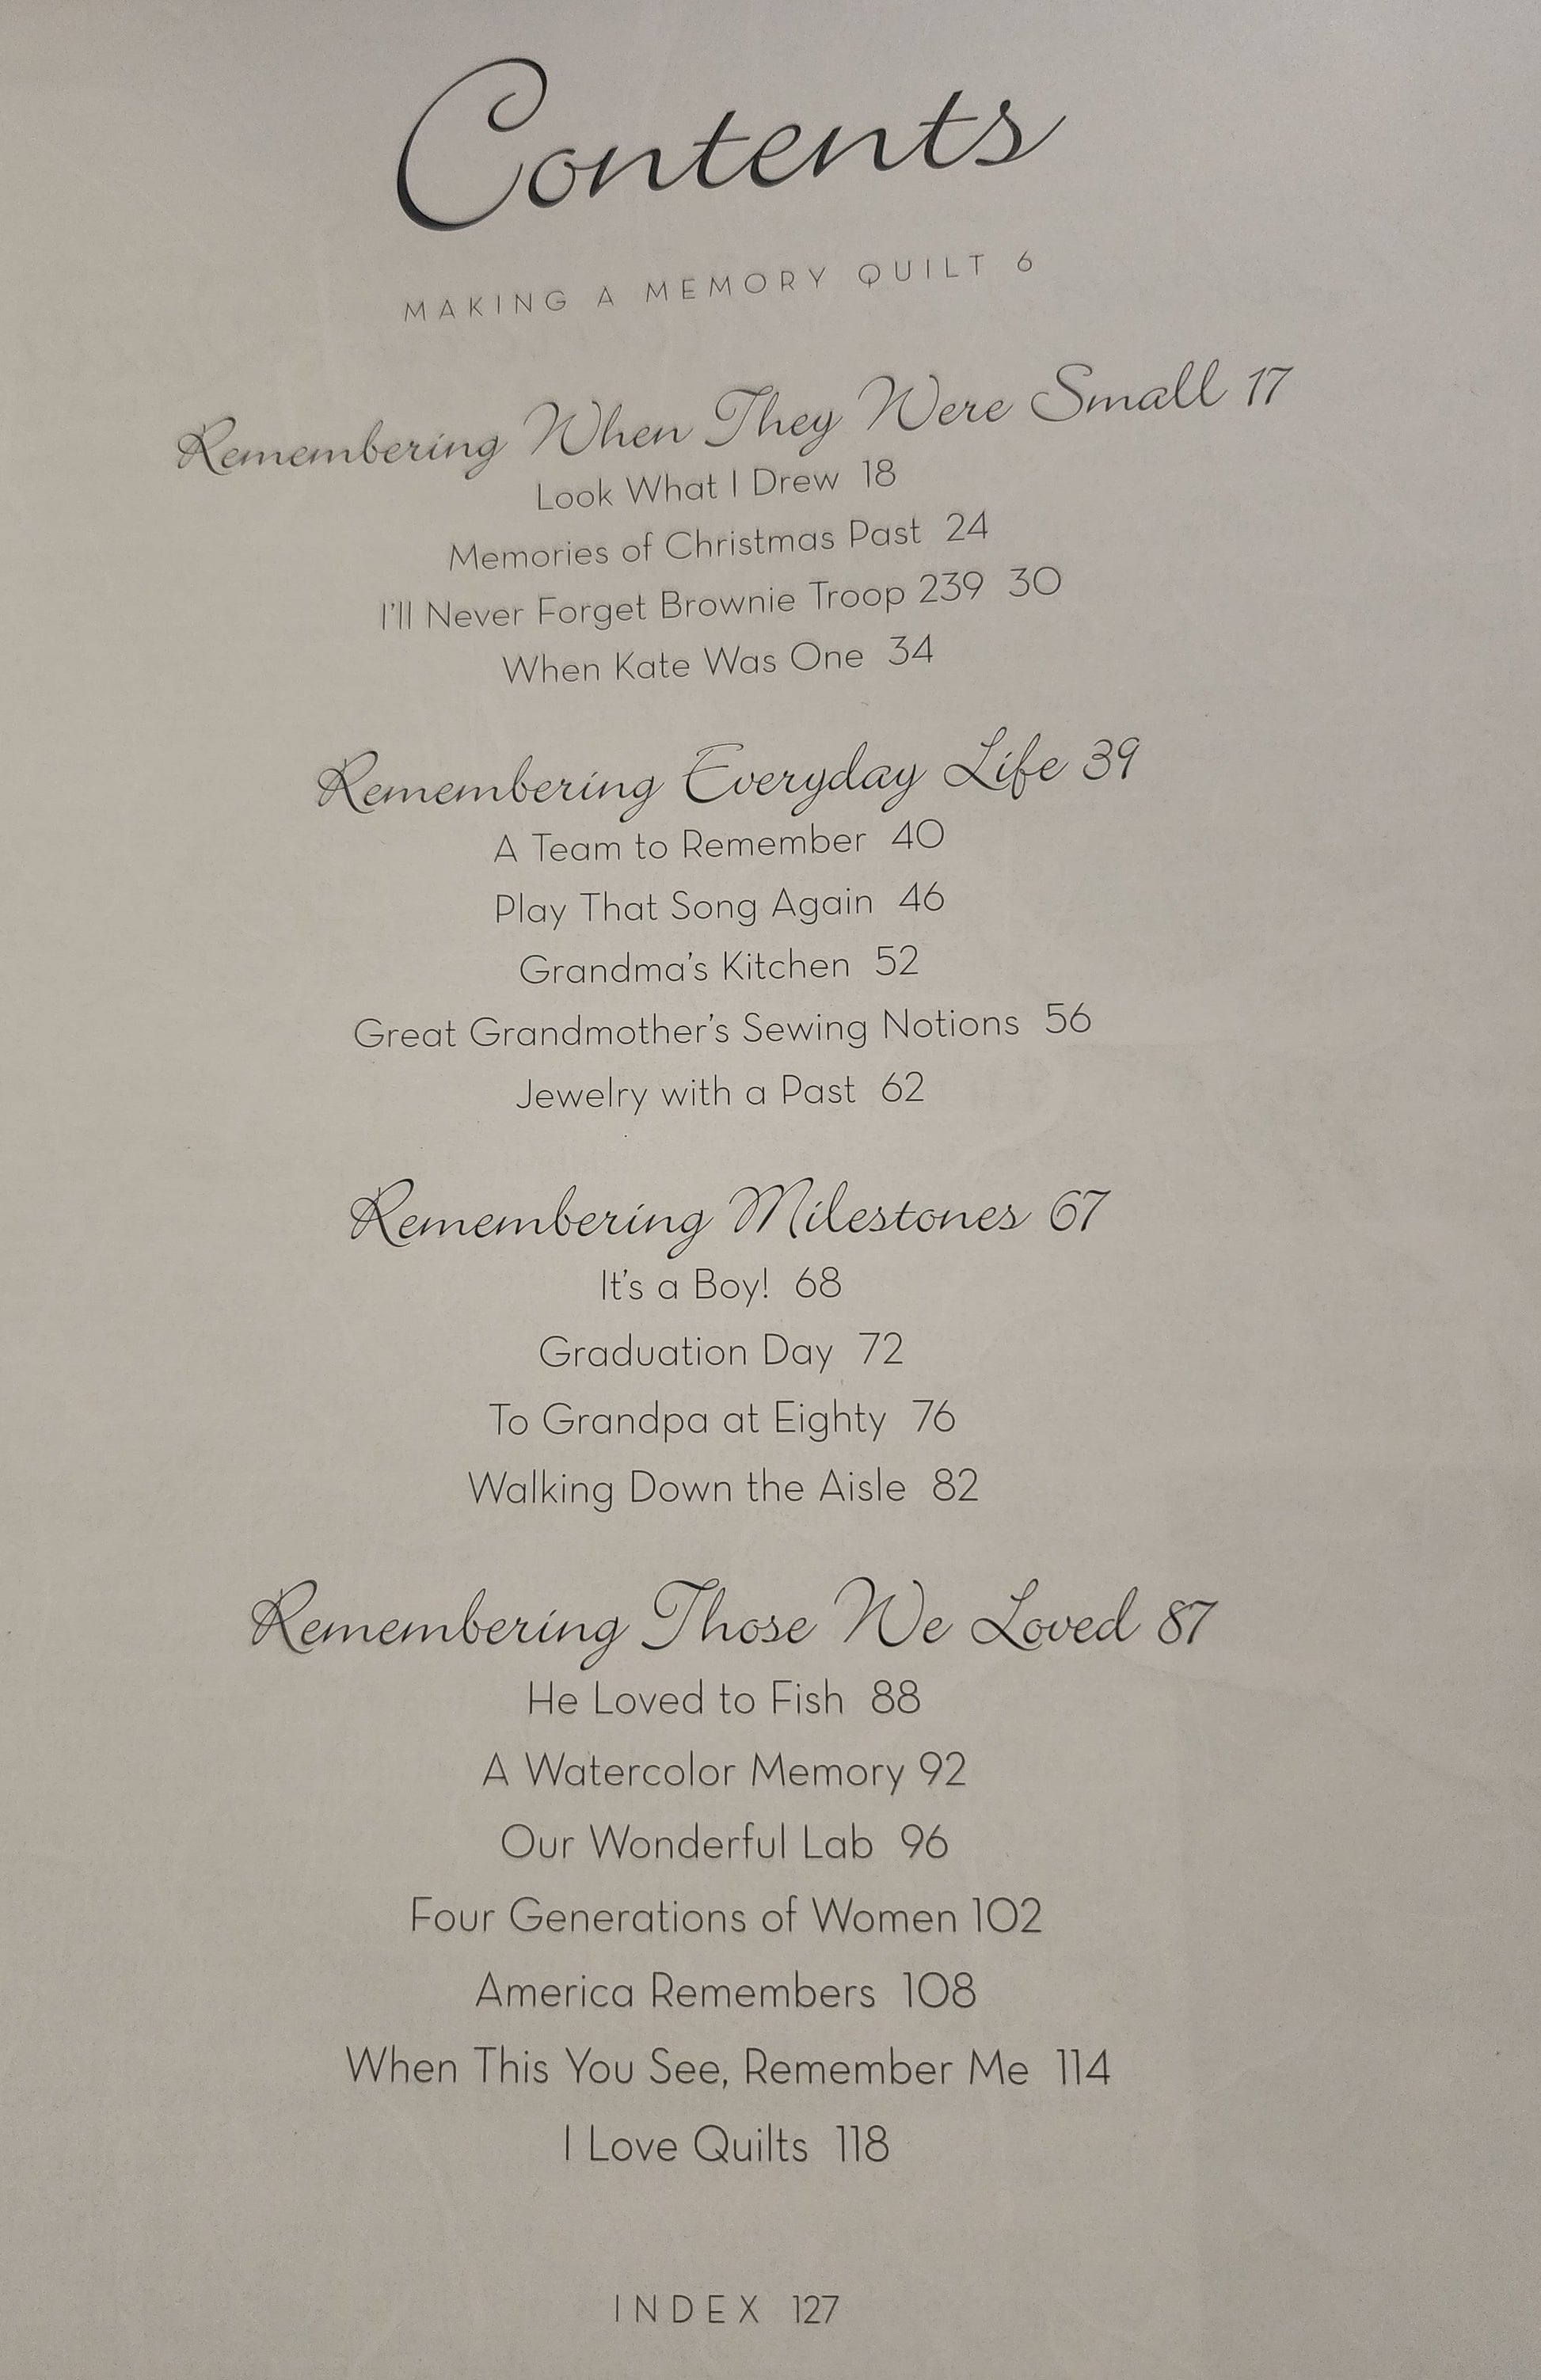 Contents
MAKING A MEMORY QUILT 6
Remembering When They Were Small 17
Look What I Drew 18
Memories of Christmas Past 24
I'll Never Forget Brownie Troop 239 30
When Kate Was One 34
Remembering Everyday Life 39
A Team to Remember 40
Play That Song Again 46
Grandma's Kitchen 52
Great Grandmother's Sewing Notions 56
Jewelry with a Past 62
Remembering Milestones 67
It's a Boy! 68
Graduation Day 72
To Grandpa at Eighty 76
Walking Down the Aisle 82
Remembering Those We Loved 87
He Loved to Fish 88
A Watercolor Memory 92
Our Wonderful Lab 96
Four Generations of Women 102
America Remembers 108
When This You See, Remember Me 114
I Love Quilts 118
INDEX 127